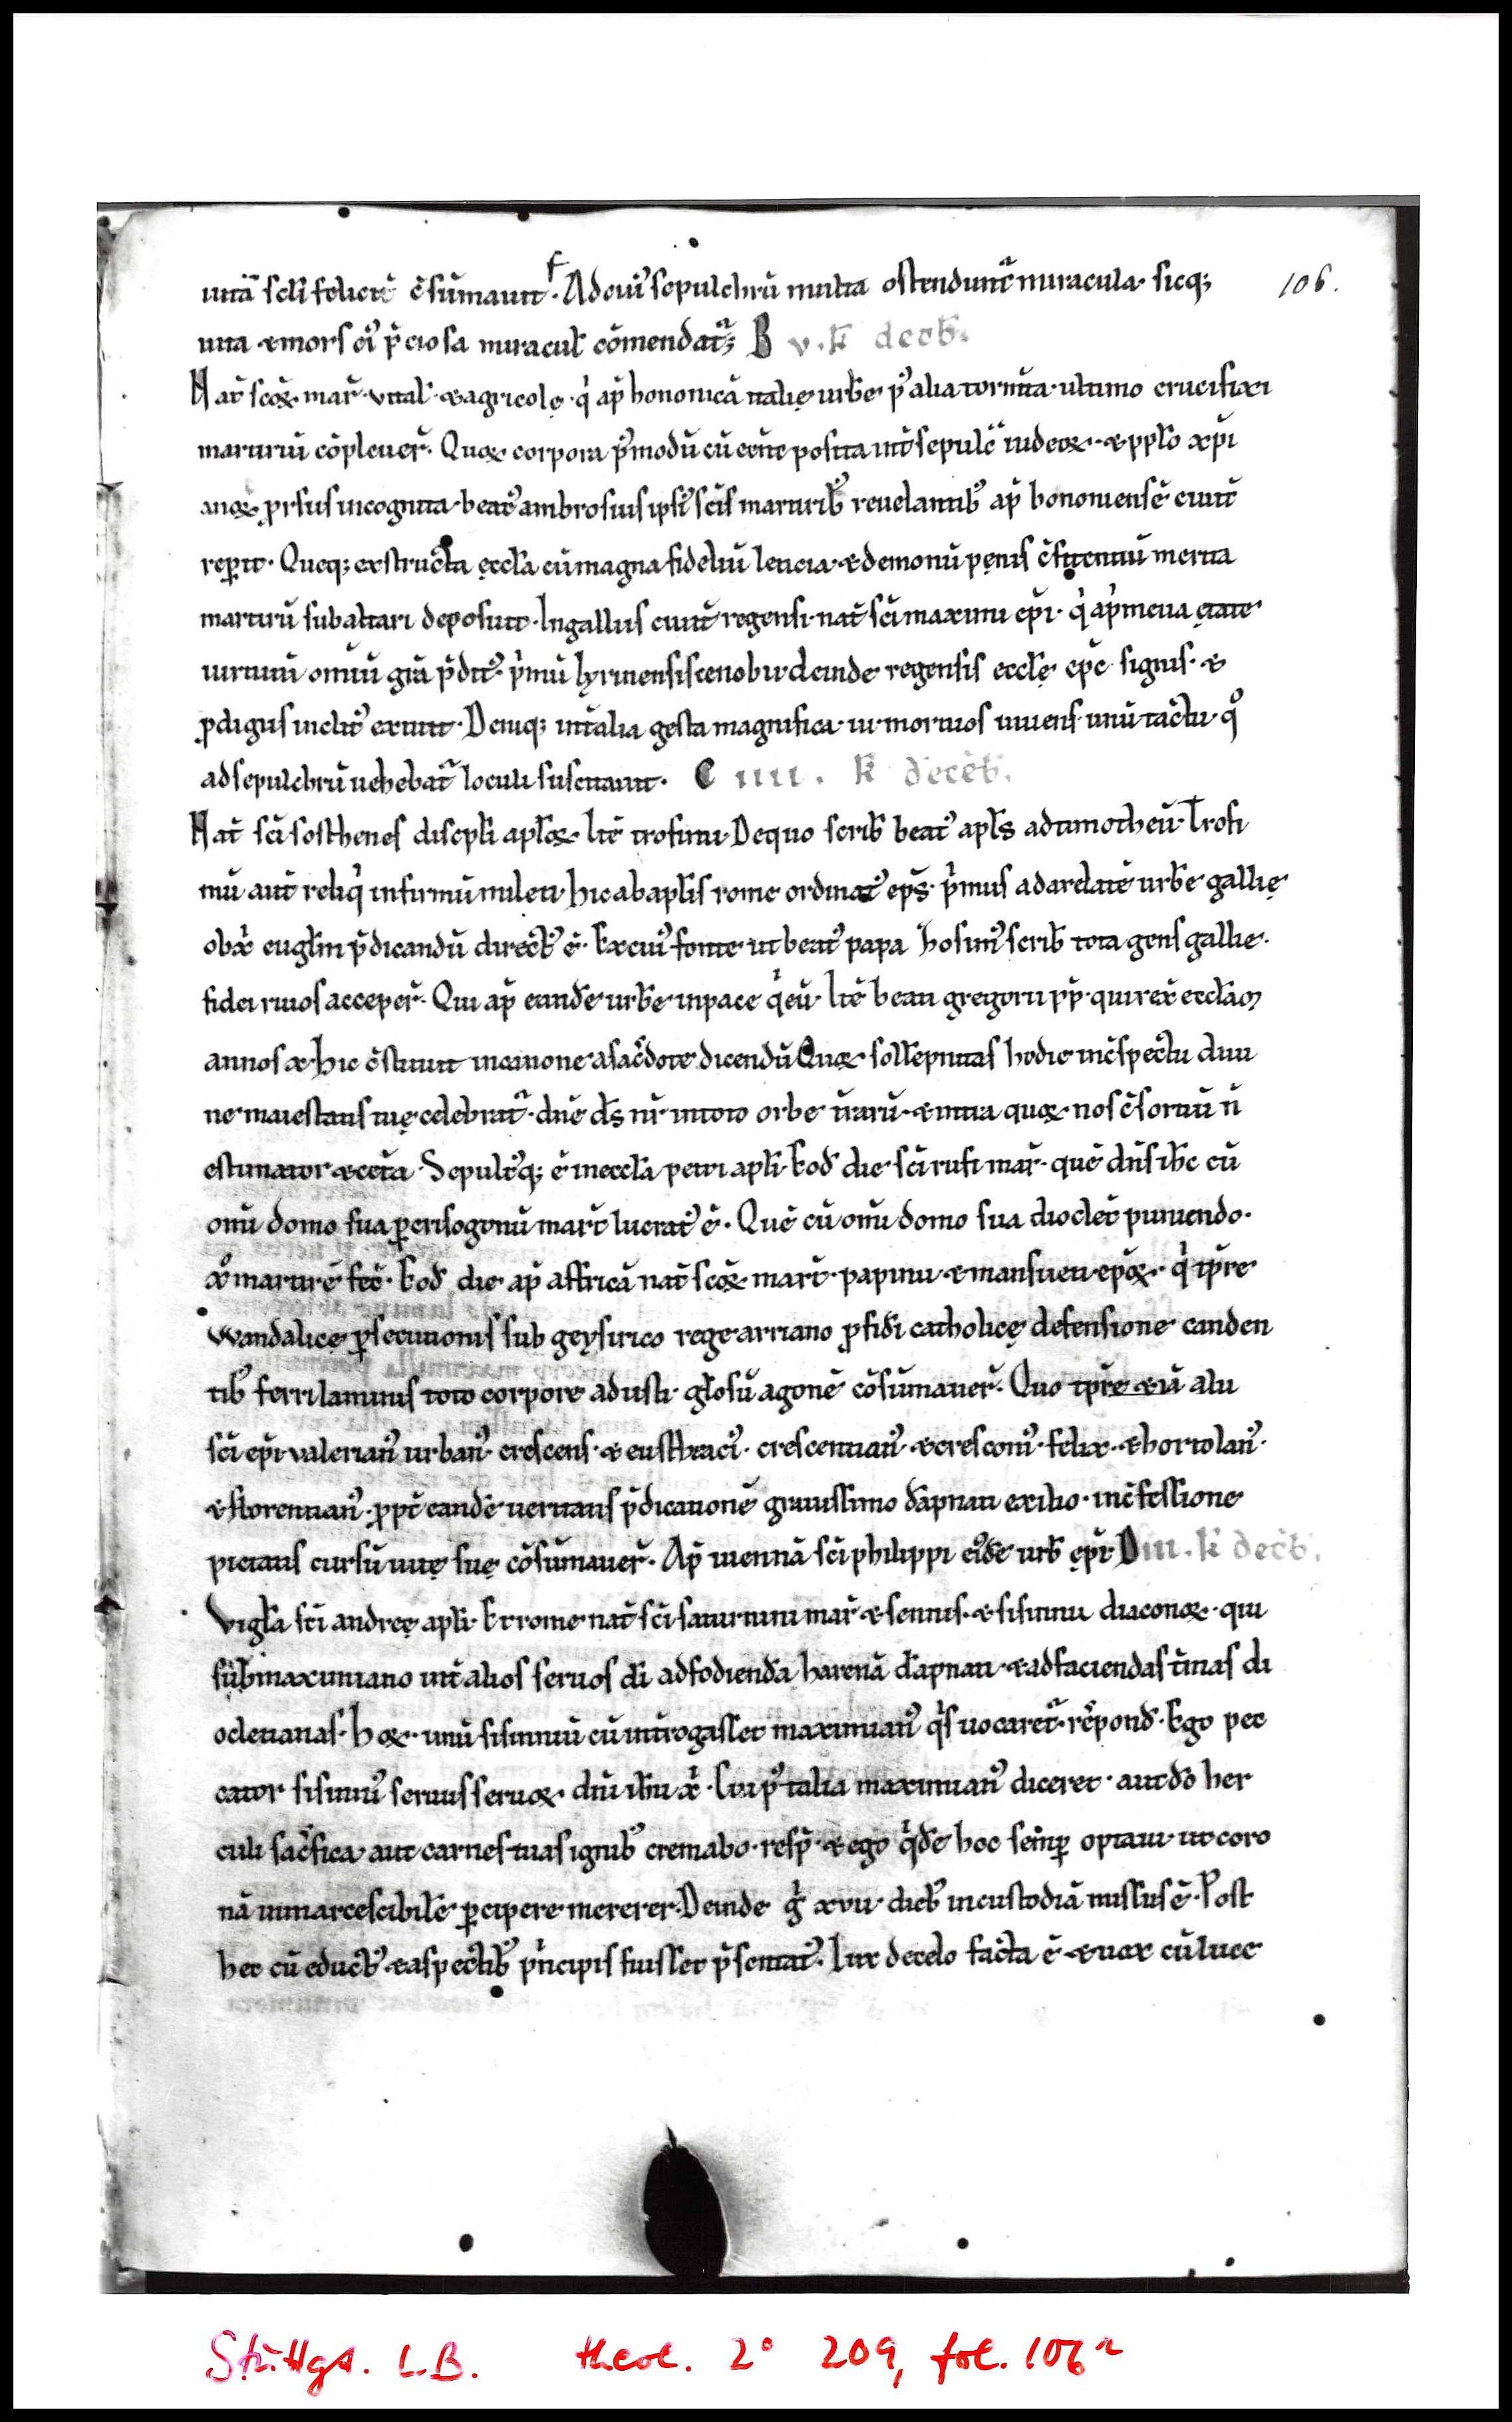 uitā scli felicit̄ c̄sūmauit. Ad cui᷒ sepulchrū multa ostendunt᷑ miracula. sicq; 106.
uita &mors ei᷒ p̄ciosa miracul̄ cōmendat᷑; B v. k̄ decēb.
Nat̄ scōꝝ mar̄. vital̄. &agricolę. q̇ ap̄ bononicā italię urbē p᷒ alia torm̄ta. ultimo crucifixi
martiriū cōpleuer̄. Quoꝝ corpora p᷒modū cū cet̄e posita int̄ sepulc̄ iudeoꝝ. & pplo xp̄i
anoꝝ ꝓrsus incognita. beat᷒ ambrosius ipsi᷒ scīs martirib᷒ reuelantib᷒ ap̄ bononiensē ciuit̄
rep̄it. Queq; exstructa ęccl̄a cū magna fideliū leticia. &demonū pęnis c̄fitentiū merita
martirū sub altari deposuit. In gallus ciuit̄ regensi. nat̄ sc̄i maximi ep̄i. q̇ a ṗmeua ętate
uirtutū om̄iū grā p̄dit᷒. ṗmū lyrinensis cenobii. deinde regensis eccl̄ę ep̄c. signis. &
ꝓdigiis inclit᷒ extitit. Deniq; int̄ alia gesta magnifica. iii. mortuos uiuens. unū tactu. q̊
ad sepulchrū uehebat᷑ loculi suscitauit. C iiii. k̄ decēb.
Nat̄ sc̄i sosthenes discipl̄i apl̄oꝝ. Itē trofimi. De quo scrib̄ beat᷒ apl̄s ad timotheū. Trofi
mū aut̄ reliq̇ infirmū mileti. hic ab apl̄is rome ordinat᷒ ep̄s. ṗmus ad arelatē urbē gallię
ob xp̄i eugl̄m p̄dicandū direct᷒ ē. Ex cui᷒ fonte. ut beat᷒ papa zosim᷒ scrib̄ tota gens gallie.
fidei riuos acceper̄. Qui ap̄ eandē urbē in pace q̇eū. Itē beati gregorii pp̄. qui rex̄ eccl̄am
annos x. hic c̄stituit in canone a sac̄dote dicendū Quoꝝ sollēpnitas hodie in c̄spectu diui
ne maiestatis tuę celebrat᷑. dn̄e ds̄ nr̄. in toto orbe t̄raru. & intra quoꝝ nos c̄sortiū n̄
estimator &cet̄a. Sepult᷒q; ē in eccl̄a petri apl̄i. Eod̄ die. sc̄i rufi mar̄. quē dn̄s ih̄c cū
om̄i domo sua p̄ crisogonū mart̄ lucrat᷒ ē. Quē cū om̄i domo sua dioclet̄ puniendo.
x̊ martirē fec̄. Eod̄ die ap̄ affricā nat̄ scōꝝ mart̄. papinii &mansueti. ep̄oꝝ. q̇ tp̄re
wandalicę p̄secutionis sub geysirico rege arriano ꝓ fidī catholicę defensione canden
tib᷒ ferri laminis toto corpore adusti. gl̄osū agonē cōsūmauer̄. Quo tp̄re &iā alii
sc̄i ep̄i valerian᷒ urban᷒. crescens. & eustraci᷒. crescentian᷒. &cresconi᷒. felix. &hortolan᷒.
&florentian᷒. ꝓpt̄ eandē ueritatis p̄dicationē grauissimo dāpnati exilio. in c̄fessione
pietatis cursū uitę suę cōsūmauer̄. Ap̄ uiennā sc̄i philippi ei᷒dē urb̄ ęp̄i. D iii. k̄ decēb.
Vigl̄a sc̄i andree apl̄i. Et rome nat̄ sc̄i saturnini mar̄ &sennis. &sisinnii diaconoꝝ. qui
sub maximiano int̄ alios seruos dī ad fodiendā harenā dāpnati. &ad faciendas t̄mas di
ocletianas. Hoꝝ. unū sisinniū cū int̄rogasset maximian᷒ q̇s uocaret᷑. rēpond̄. Ego pec
cator sisinni᷒ seruus seruoꝝ. dn̄i ih̄u x̄. Cui p᷒ talia maximian᷒ diceret. aut do her
culi sac̄fica. aut carnes tuas ignib᷒ cremabo. resp̄. & ego q̇dē hoc semp̄ optaui. ut coro
nā inmarcescibilē p̄cipere mererer. Deinde g̊ xvii. dieb᷒ in custodiā missus ē. Post
hec cū educt᷒. &aspectib᷒ ṗncipis fuisset p̄sentat᷒. Lux de celo facta ē. &uox cū luce
Stuttga. L.B. theol. 2° 209, fol. 106r